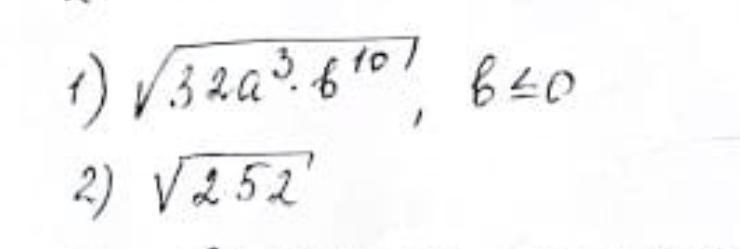 1) √(32a³·b¹⁰), b≤0
2) √252